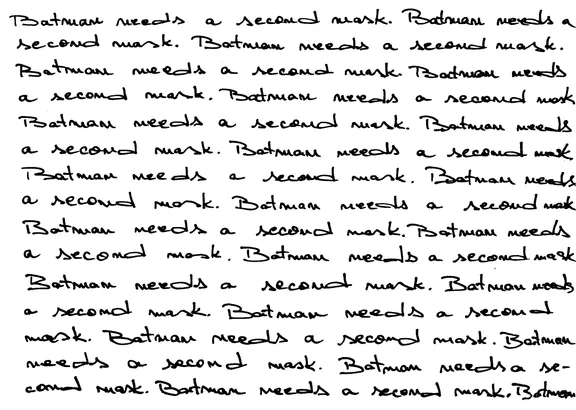 Batman needs a second mask. Batman needs a
second mask. Batman needs a second mask.
Batman needs a second mask. Batman needs
a second mask. Batman needs a second mask
Batman needs a second mask. Batman needs
a second mask. Batman needs a second mask.
Batman needs a second mask. Batman needs
a second mask. Batman needs a second mask
Batman needs a second mask. Batman needs
a second mask. Batman needs a second mask
Batman needs a second mask. Batman needs
a second mask. Batman needs a second
mask. Batman needs a second mask. Batman
needs a second mask. Batman needs a se-
cond mask. Batman needs a second mask. Batman